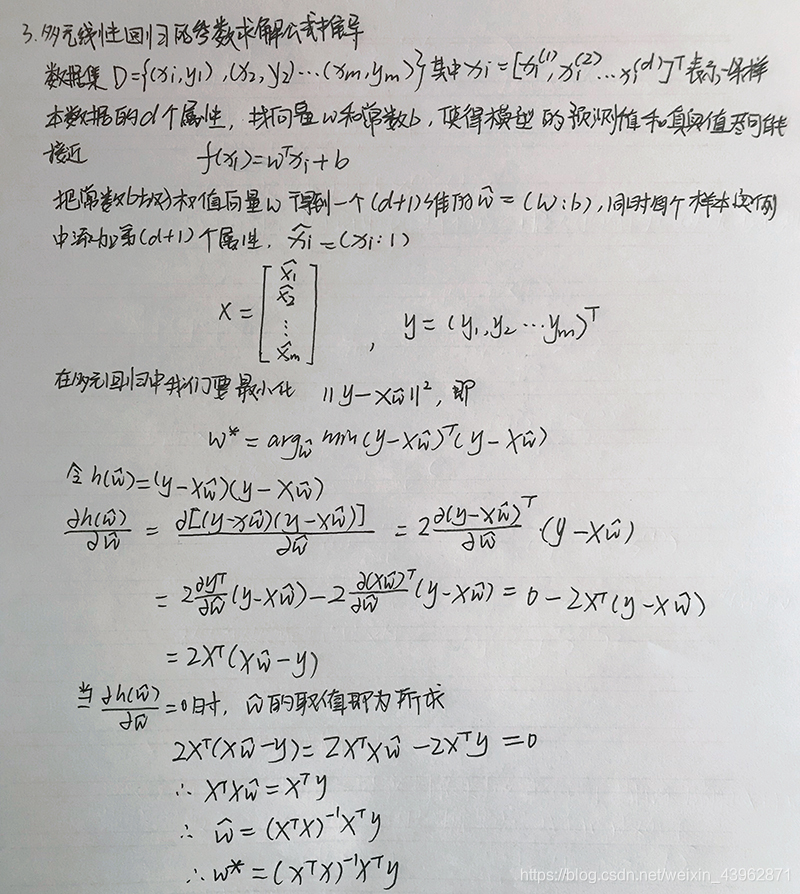 3.多元线性回归的参数求解公式推导
数据集 D={(x₁,y₁),(x₂,y₂)…(xₘ,yₘ)}其中xᵢ=[xᵢ⁽¹⁾,xᵢ⁽²⁾…xᵢ⁽ᵈ⁾]ᵀ表示一条样
本数据的d个属性，找向量w和常数b，使得模型的预测值和真实值尽可能
接近 f(xᵢ)=wᵀxᵢ+b
把常数b放权值向量w 得到一个(d+1)维的ŵ=(w:b),同时每个样本实例
中添加第(d+1)个属性，x̂ᵢ=(xᵢ:1)
X=[x̂₁ x̂₂ ⋮ x̂ₘ] , y=(y₁,y₂…yₘ)ᵀ
在多元回归中我们要最小化 ||y-Xŵ||²,即
w*=arg_ŵ min(y-Xŵ)ᵀ(y-Xŵ)
令h(ŵ)=(y-Xŵ)(y-Xŵ)
∂h(ŵ)/∂ŵ = ∂[(y-xŵ)(y-Xŵ)]/∂ŵ = 2 ∂(y-Xŵ)ᵀ/∂ŵ ·(y-Xŵ)
= 2 ∂yᵀ/∂ŵ (y-Xŵ)-2 ∂(Xŵ)ᵀ/∂ŵ (y-Xŵ)=0-2Xᵀ(y-Xŵ)
=2Xᵀ(Xŵ-y)
当 ∂h(ŵ)/∂ŵ =0时，ŵ的取值即为所求
2Xᵀ(Xŵ-y)=2XᵀXŵ-2Xᵀy=0
∴ XᵀXŵ=Xᵀy
∴ ŵ=(XᵀX)⁻¹Xᵀy
∴w*=(XᵀX)⁻¹Xᵀy
https://blog.csdn.net/weixin_43962871